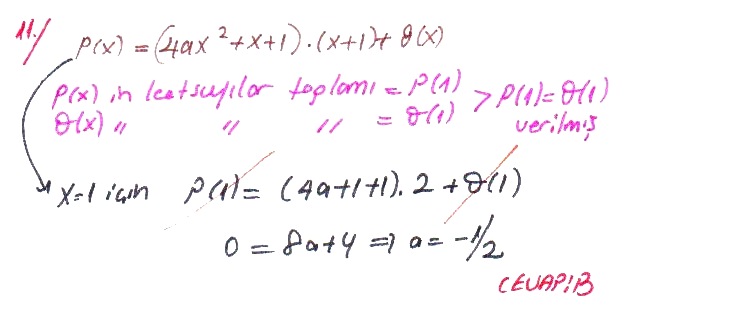 11./ P(x) = (4ax²+x+1).(x+1)+ Q(x)
P(x) in katsayılar toplamı = P(1) > P(1)= Q(1)
Q(x) " " " = Q(1) verilmiş
x=1 için P(1) = (4a+1+1). 2 + Q(1)
0 = 8a+4 => a= -1/2
CEVAP:B